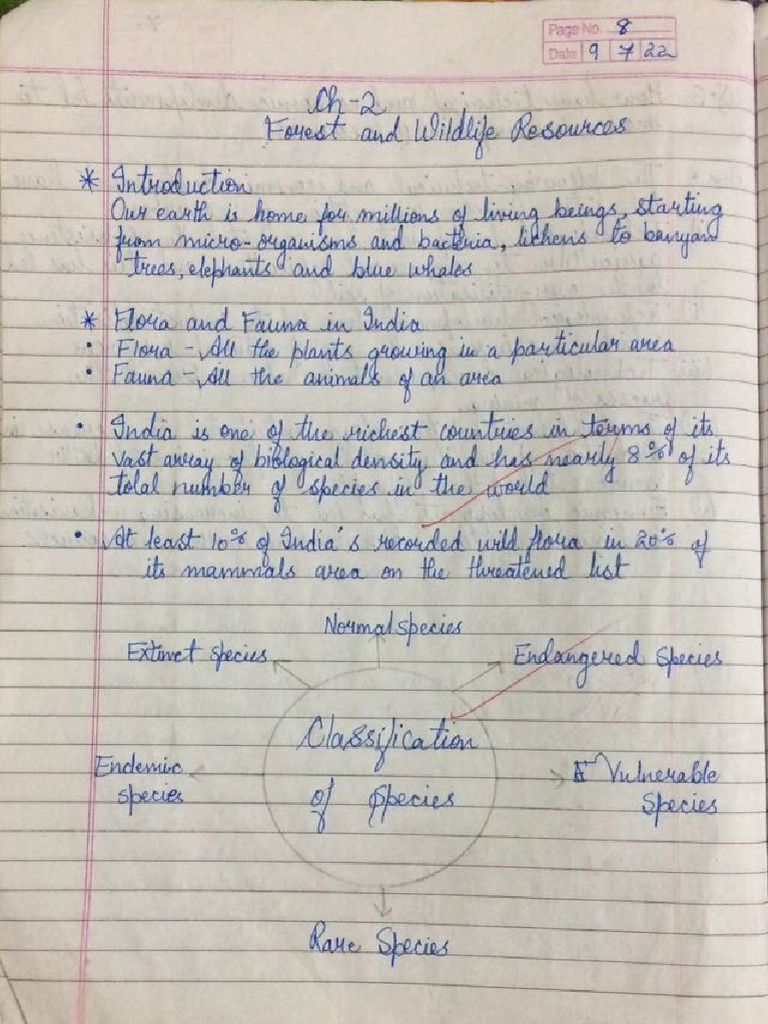 Page No. 8
Date 9 7 22
Ch-2
Forest and Wildlife Resources
* Introduction
Our earth is home for millions of living beings, starting
from micro-organisms and bacteria, lichens to banyan
trees, elephants and blue whales
* Flora and Fauna in India
• Flora - All the plants growing in a particular area
• Fauna - All the animals of an area
• India is one of the richest countries in terms of its
vast array of biological density and has nearly 8% of its
total number of species in the world
• At least 10% of India's recorded wild flora in 20% of
its mammals area on the threatened list
Normal species
Extinct species
Endangered Species
Classification
of Species
Endemic
species
Vulnerable
Species
Rare Species